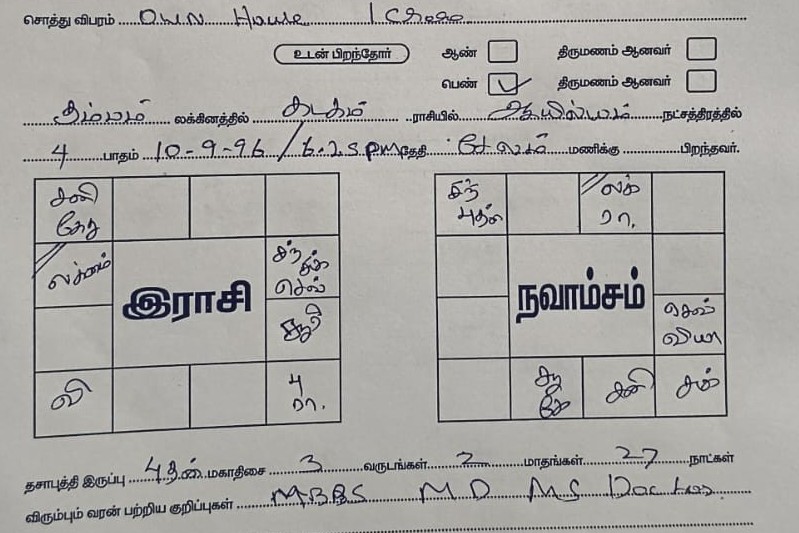 சொத்து விபரம் Own House 1 Crore
உடன் பிறந்தோர் ஆண் திருமணம் ஆனவர்
பெண் திருமணம் ஆனவர்
கும்பம் லக்கினத்தில் கடகம் ராசியில் ஆயில்யம் நட்சத்திரத்தில்
4 பாதம் 10-9-96 / 6.25 pm தேதி சேலம் மணிக்கு பிறந்தவர்.
சனி கேது
லக்னம்
சந் சுக் செவ்
சூரி
வி
பு ரா.
இராசி
சந் புதன்
லக் ரா.
செவ் வியா
சூ கே
சனி
சுக்
நவாம்சம்
தசாபுத்தி இருப்பு புதன் மகாதிசை 3 வருடங்கள் 2 மாதங்கள் 27 நாட்கள்
விரும்பும் வரன் பற்றிய குறிப்புகள் MBBS MD MS Doctor